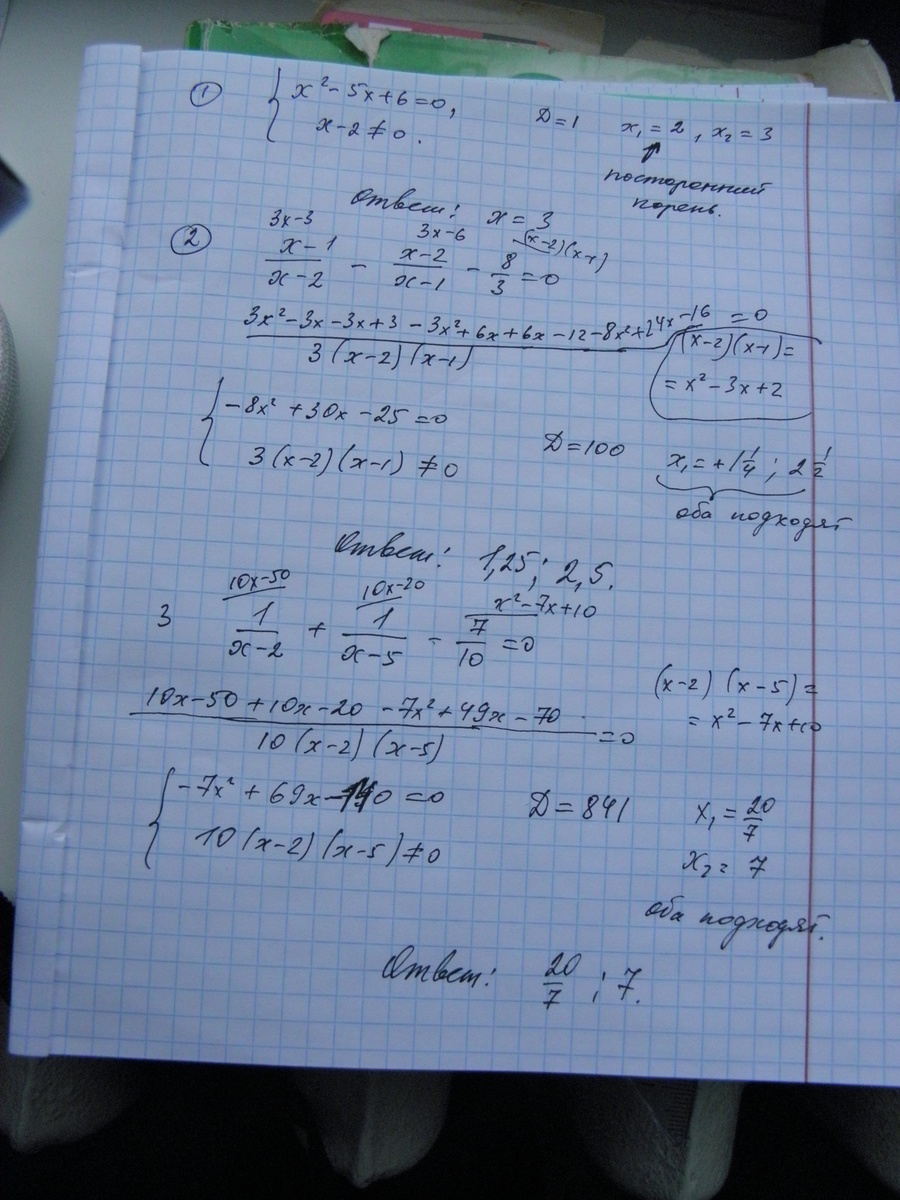 ① { x² - 5x + 6 = 0, D = 1 x₁ = 2, x₂ = 3
x - 2 ≠ 0.
↑
посторонний
корень.
Ответ: x = 3
② 3x-3 3x-6 (x-2)(x-1)
(x-1)/(x-2) - (x-2)/(x-1) - 8/3 = 0
(3x² - 3x - 3x + 3 - 3x² + 6x + 6x - 12 - 8x² + 24x - 16)/(3(x-2)(x-1)) = 0
(x-2)(x-1) =
= x² - 3x + 2
{ -8x² + 30x - 25 = 0
3(x-2)(x-1) ≠ 0 D = 100 x₁ = +1 1/4; 2 1/2
оба подходят
Ответ: 1,25; 2,5.
10x-50 10x-20 x²-7x+10
3 1/(x-2) + 1/(x-5) - 7/10 = 0
(x-2)(x-5) =
= x² - 7x + 10
(10x - 50 + 10x - 20 - 7x² + 49x - 70)/(10(x-2)(x-5)) = 0
{ -7x² + 69x - 140 = 0 D = 841 x₁ = 20/7
10(x-2)(x-5) ≠ 0 x₂ = 7
оба подходят.
Ответ: 20/7; 7.